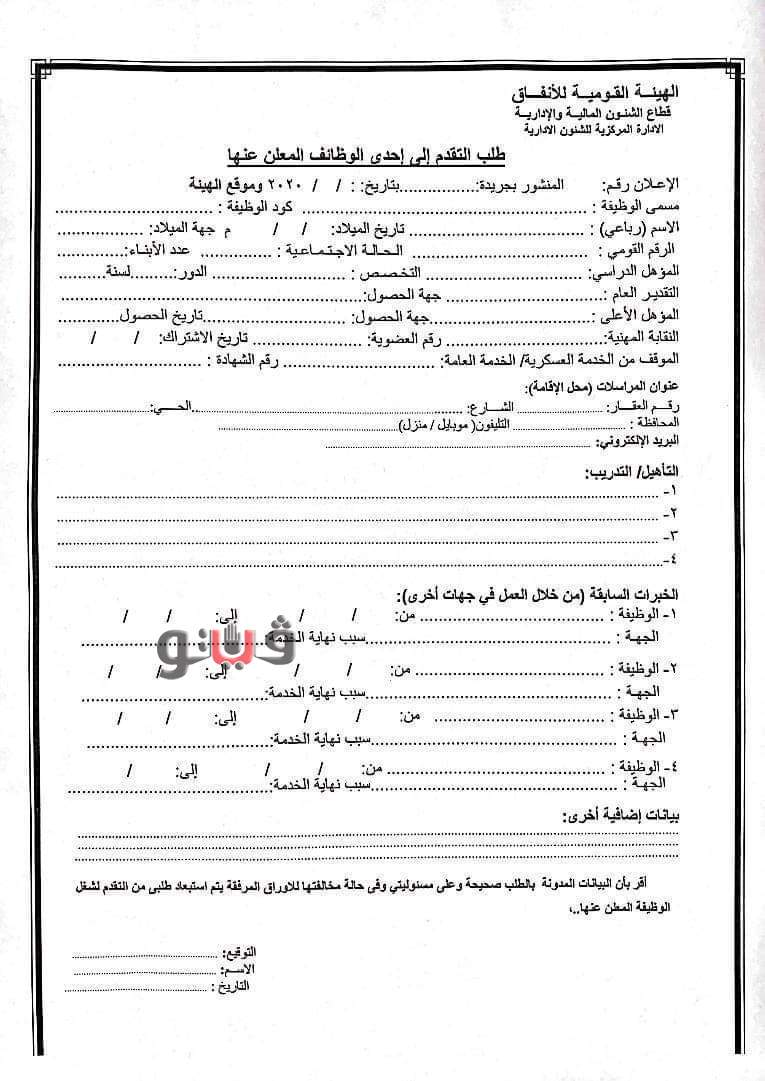 الهيئـــة القـوميـــة للأنفـــاق
قطاع الشئـون الماليـة والإداريـة
الادارة المركزية للشئون الادارية
طلب التقدم إلى إحدى الوظائف المعلن عنها
الإعـلان رقـم: المنشور بجريدة:.................بتاريخ: : / / ٢٠٢٠ وموقع الهيئة
مسمى الوظيفة : .................................................. كود الوظيفة : ..............................
الاسم (رباعي) : .................................. تاريخ الميلاد: / / م جهة الميلاد: .................
الرقم القومي : .................................. الحـالـة الاجـتـمـاعـيـة : ............... عدد الأبناء:.............
المؤهل الدراسي:.............................. التخـصـص : .......................... الدور:.........لسنة...........
التقديـر العام : .............................. جهة الحصول:.......................................................
المؤهل الأعلى :..............................جهة الحصول: ..........................تاريخ الحصول..............
النقابة المهنية:.............................. رقم العضوية: .................... تاريخ الاشتراك: / /
الموقف من الخدمة العسكرية/ الخدمة العامة: .......................... رقم الشهادة : ..........................
عنوان المراسلات (محل الإقامة):
رقـم العقـار:.................... الشارع: ..................................................الحـــي:..............................
المحافظة : .............................. التليفون( موبايل / منزل)........................................
البريد الإلكتروني: ............................................................
التأهيل/ التدريب:
١- ............................................................
٢- ............................................................
٣- ............................................................
٤- ............................................................
الخبرات السابقة (من خلال العمل في جهات أخرى):
١- الوظيفة : .................................. من: / / إلى: / /
الجهة : ..................................................سبب نهاية الخدمة:..............................
ڤيتو
٢- الوظيفة : .................................. من: / / إلى: / /
الجهة : ..................................................سبب نهاية الخدمة:..............................
٣- الوظيفة : .................................. من: / / إلى: / /
الجهة : ..................................................سبب نهاية الخدمة:..............................
٤- الوظيفة : .................................. من: / / إلى: /
الجهة : ..................................................سبب نهاية الخدمة:..............................
بيانات إضافية أخرى:
............................................................
............................................................
............................................................
أقر بأن البيانات المدونة بالطلب صحيحة وعلى مسئوليتي وفى حالة مخالفتها للاوراق المرفقة يتم استبعاد طلبى من التقدم لشغل
الوظيفة المعلن عنها..،
التوقيع: ..............................
الاسـم: ..............................
التاريخ : ..............................